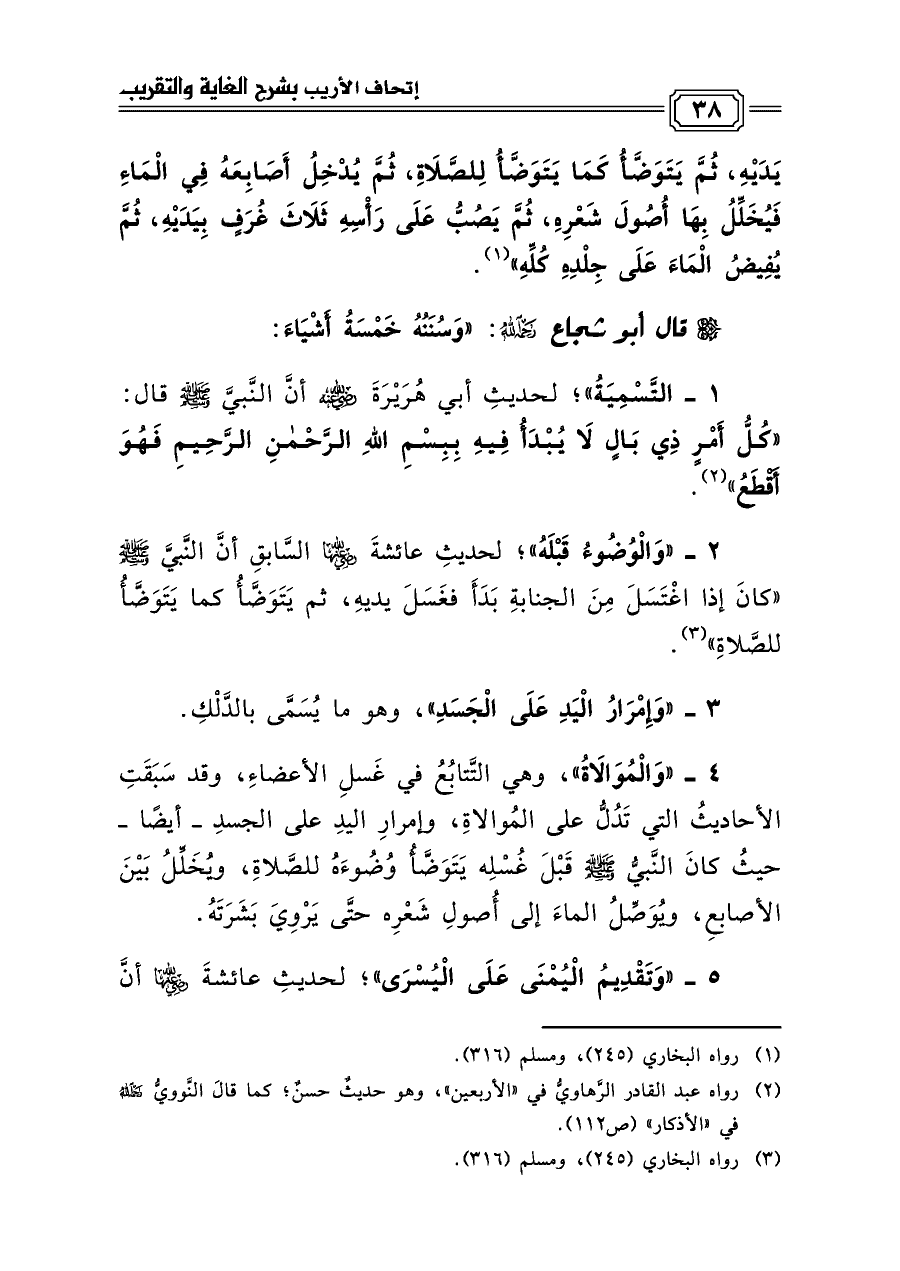 إتحاف الأريب بشرح الغاية والتقريب
٣٨
يَدَيْهِ، ثُمَّ يَتَوَضَّأُ كَمَا يَتَوَضَّأُ لِلصَّلَاةِ، ثُمَّ يُدْخِلُ أَصَابِعَهُ فِي الْمَاءِ
فَيُخَلِّلُ بِهَا أُصُولَ شَعْرِهِ، ثُمَّ يَصُبُّ عَلَى رَأْسِهِ ثَلَاثَ غُرَفٍ بِيَدَيْهِ، ثُمَّ
يُفِيضُ الْمَاءَ عَلَى جِلْدِهِ كُلِّهِ»(١).
قال أبو شجاع رَحِمَهُ اللهُ: «وَسُنَنُهُ خَمْسَةُ أَشْيَاءَ:
١ ـ التَّسْمِيَةُ»؛ لحديثِ أبي هُرَيْرَةَ رضي الله عنه أنَّ النَّبيَّ ﷺ قال:
«كُلُّ أَمْرٍ ذِي بَالٍ لَا يُبْدَأُ فِيهِ بِبِسْمِ اللهِ الرَّحْمٰنِ الرَّحِيمِ فَهُوَ
أَقْطَعُ»(٢).
٢ ـ «وَالْوُضُوءُ قَبْلَهُ»؛ لحديثِ عائشةَ رضي الله عنها السَّابقِ أنَّ النَّبيَّ ﷺ
«كانَ إذا اغْتَسَلَ مِنَ الجنابةِ بَدَأَ فغَسَلَ يديهِ، ثم يَتَوَضَّأُ كما يَتَوَضَّأُ
للصَّلاةِ»(٣).
٣ ـ «وَإِمْرَارُ الْيَدِ عَلَى الْجَسَدِ»، وهو ما يُسَمَّى بالدَّلْكِ.
٤ ـ «وَالْمُوَالَاةُ»، وهي التَّتابُعُ في غَسلِ الأعضاءِ، وقد سَبَقَتِ
الأحاديثُ التي تَدُلُّ على المُوالاةِ، وإمرارِ اليدِ على الجسدِ ـ أيضًا ـ
حيثُ كانَ النَّبيُّ ﷺ قَبْلَ غُسْلِه يَتَوَضَّأُ وُضُوءَهُ للصَّلاةِ، ويُخَلِّلُ بَيْنَ
الأصابعِ، ويُوَصِّلُ الماءَ إلى أُصولِ شَعْرِه حتَّى يَرْوِيَ بَشَرَتَهُ.
٥ ـ «وَتَقْدِيمُ الْيُمْنَى عَلَى الْيُسْرَى»؛ لحديثِ عائشةَ رضي الله عنها أنَّ
(١) رواه البخاري (٢٤٥)، ومسلم (٣١٦).
(٢) رواه عبد القادر الرَّهاويُّ في «الأربعين»، وهو حديثٌ حسنٌ؛ كما قالَ النَّوويُّ رَحِمَهُ اللهُ
في «الأذكار» (ص١١٢).
(٣) رواه البخاري (٢٤٥)، ومسلم (٣١٦).